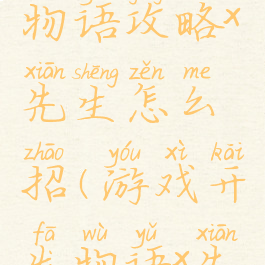 物语攻略x
xiān shēng zěn me
先生怎么
zhāo yóu xì kāi
招(游戏开
fā wù yǔ xiān
发物语x先